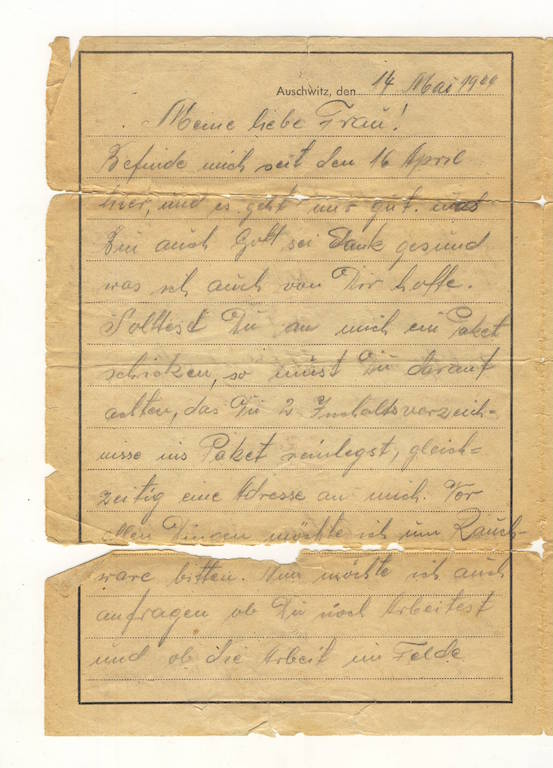 Auschwitz, den 14 Mai 19
Meine liebe Frau!
Befinde mich seit den 16 April
hier, und es geht mir gut. und
Bin auch Gott sei Dank gesund
was ich auch von Dir hoffe.
Solltest Du an mich ein Paket
schicken, so must Du darauf
achten, das Du 2 Inhaltsverzeich-
nisse ins Paket reinlegst, gleich=
zeitig eine Adresse an mich. Vor
allen Dingen möchte ich um Rauch-
ware bitten. Nun möchte ich auch
anfragen ob Du noch Arbeitest
und ob die Arbeit im Felde